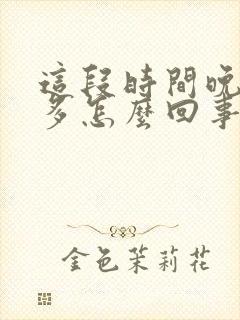 這段時間晚
多怎麼回事
金色茉莉花